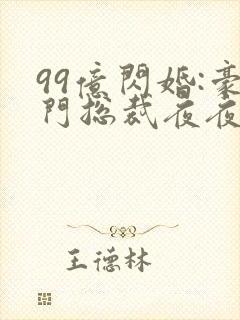 99億閃婚:豪
門総裁夜夜
王德林